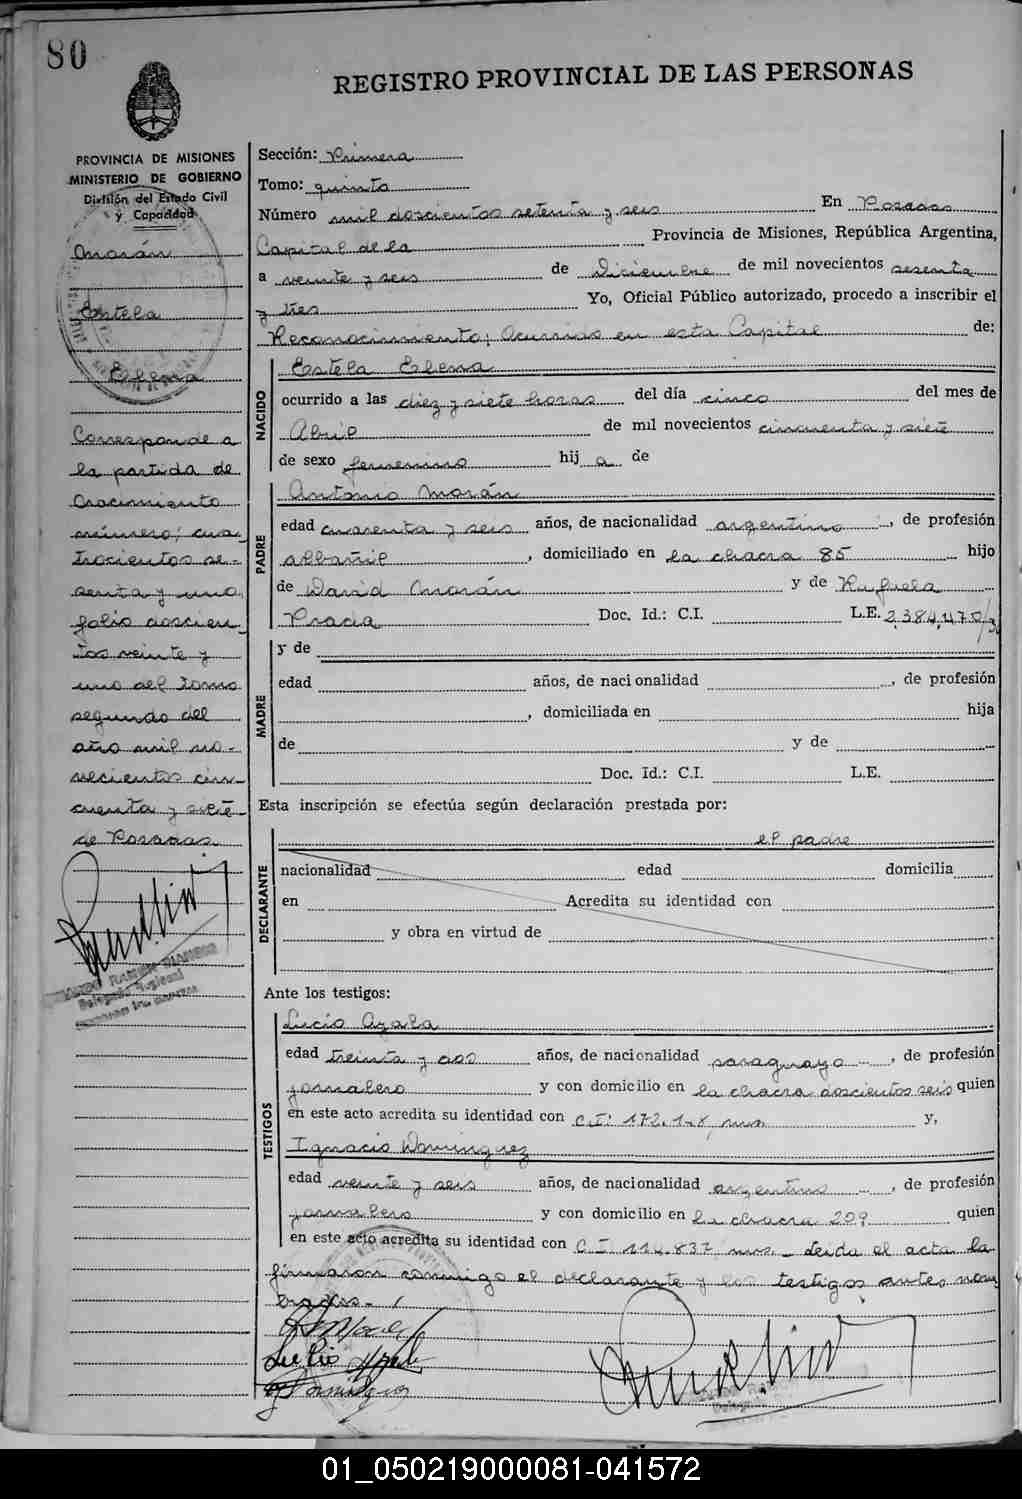 80
REGISTRO PROVINCIAL DE LAS PERSONAS
PROVINCIA DE MISIONES
MINISTERIO DE GOBIERNO
División del Estado Civil
y Capacidad
Morán
Estela
Elena
Corresponde a
la partida de
Nacimiento
número; cua
trocientos se-
senta y uno
folio doscien
tos veinte y
uno del tomo
segundo del
año mil no-
vecientos cin-
cuenta y siete
de Posadas
Delegado Regional
Sección: Primera
Tomo: quinto
Número mil doscientos setenta y seis En Posadas
Capital de la Provincia de Misiones, República Argentina,
a veinte y seis de Diciembre de mil novecientos sesenta
y tres Yo, Oficial Público autorizado, procedo a inscribir el
Reconocimiento; ocurrido en esta Capital de:
NACIDO
Estela Elena
ocurrido a las diez y siete horas del día cinco del mes de
Abril de mil novecientos cincuenta y siete
de sexo femenino hij a de
PADRE
Antonio Morán
edad cuarenta y seis años, de nacionalidad argentino, de profesión
albañil, domiciliado en la chacra 85 hijo
de David Morán y de Rufuela
Prada Doc. Id.: C.I. L.E. 2384470/
MADRE
y de
edad años, de nacionalidad , de profesión
, domiciliada en hija
de y de
Doc. Id.: C.I. L.E.
Esta inscripción se efectúa según declaración prestada por:
DECLARANTE
el padre
nacionalidad edad domicilia
en Acredita su identidad con
y obra en virtud de
Ante los testigos:
TESTIGOS
Lucio Ayala
edad treinta y dos años, de nacionalidad paraguayo, de profesión
jornalero y con domicilio en la chacra doscientos seis quien
en este acto acredita su identidad con C.I: y,
Ignacio Dominguez
edad veinte y seis años, de nacionalidad argentino, de profesión
jornalero y con domicilio en la chacra 209 quien
en este acto acredita su identidad con C.I. 114.837 mns. - Leida el acta la
firmaron conmigo el declarante y los testigos antes nom
brados.-
Lucio Ayala
01_050219000081-041572